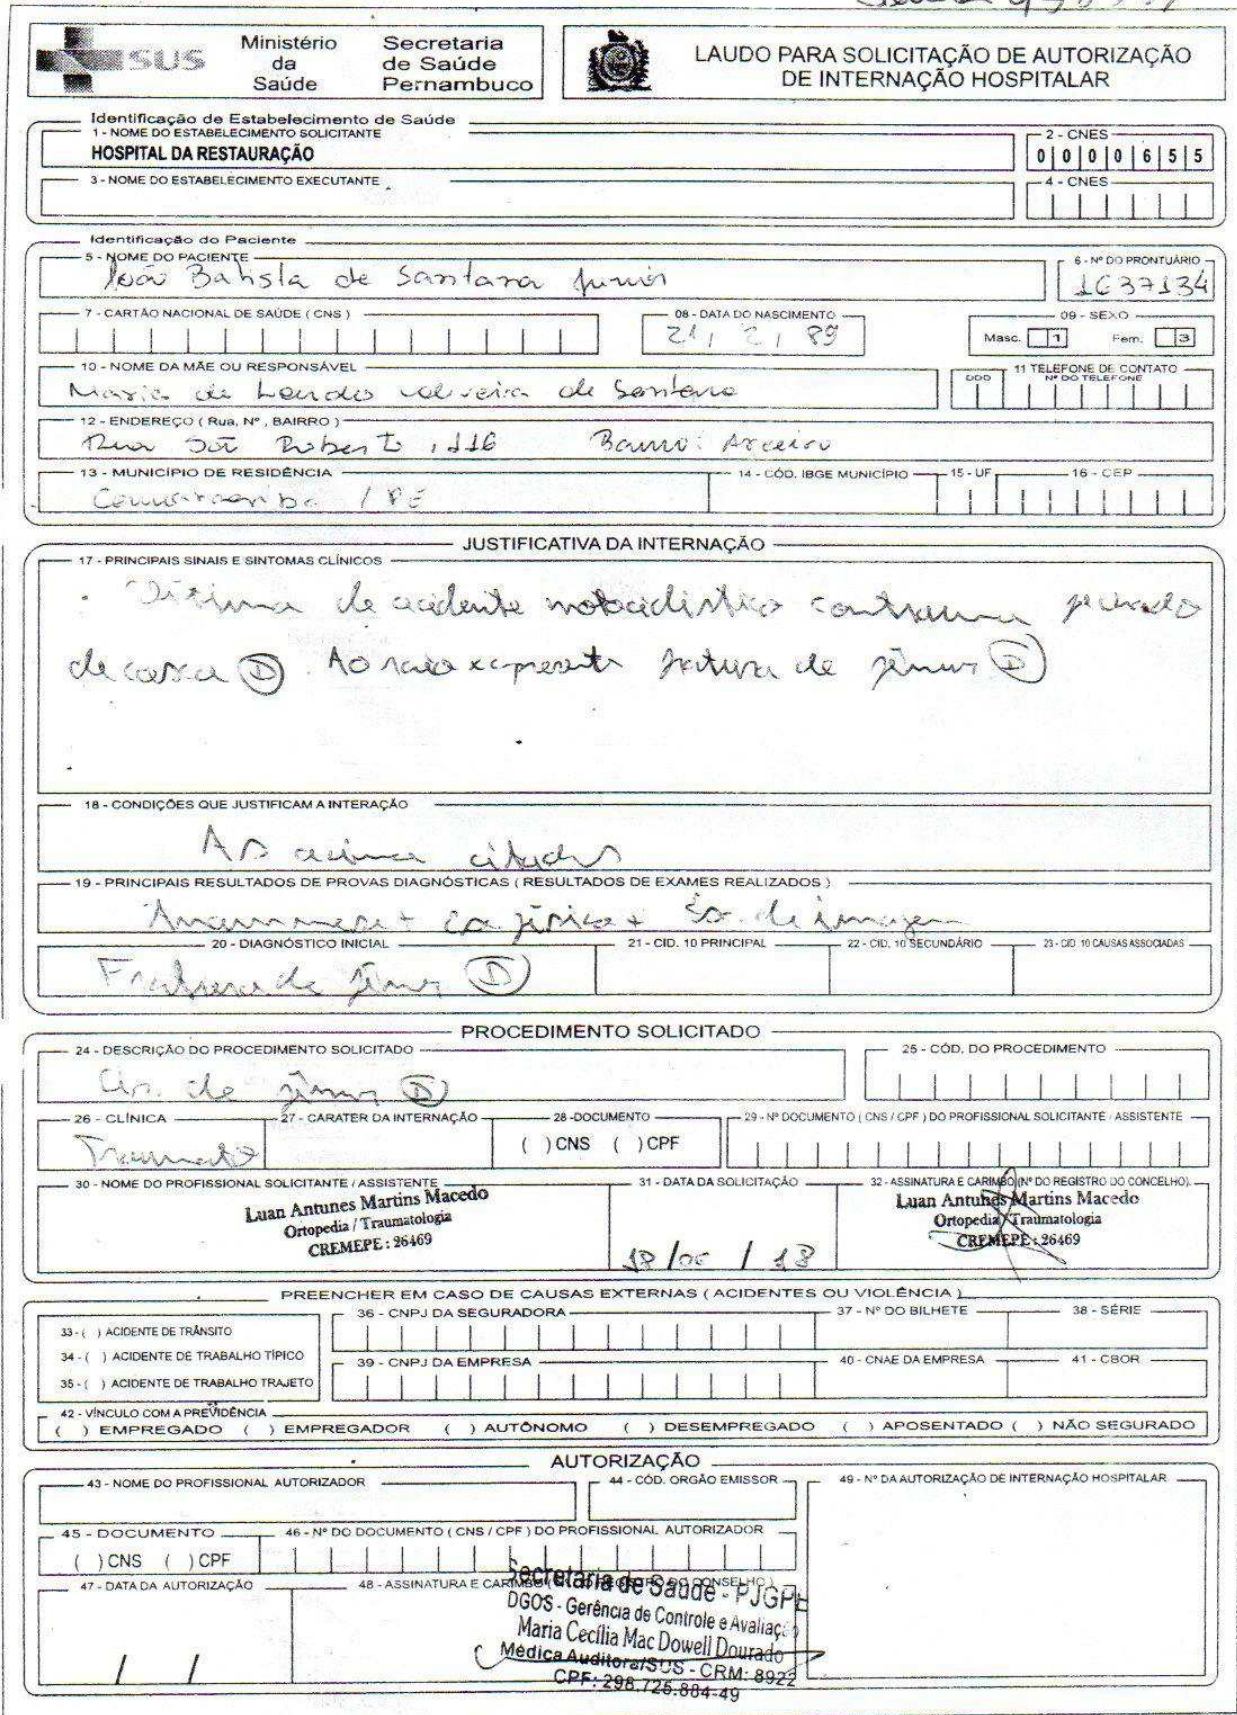 SUS
Ministério da Saúde
Secretaria de Saúde Pernambuco
LAUDO PARA SOLICITAÇÃO DE AUTORIZAÇÃO DE INTERNAÇÃO HOSPITALAR
Identificação de Estabelecimento de Saúde
1 - NOME DO ESTABELECIMENTO SOLICITANTE
2 - CNES
HOSPITAL DA RESTAURAÇÃO
0 0 0 0 6 5 5
3 - NOME DO ESTABELECIMENTO EXECUTANTE
4 - CNES
Identificação do Paciente
5 - NOME DO PACIENTE
6 - Nº DO PRONTUÁRIO
João Batista de Santana Junior
1637134
7 - CARTÃO NACIONAL DE SAÚDE ( CNS )
08 - DATA DO NASCIMENTO
09 - SEXO
21 / 2 / 89
Masc. 1 Fem. 3
10 - NOME DA MÃE OU RESPONSÁVEL
11 TELEFONE DE CONTATO
DDD Nº DO TELEFONE
Maria de de Santana
12 - ENDEREÇO ( Rua, Nº , BAIRRO )
Rua São Roberto , 116 Bairro:
13 - MUNICÍPIO DE RESIDÊNCIA
14 - CÓD. IBGE MUNICÍPIO
15 - UF
16 - CEP
/ PE
JUSTIFICATIVA DA INTERNAÇÃO
17 - PRINCIPAIS SINAIS E SINTOMAS CLÍNICOS
Vítima de acidente motociclístico com trauma
de coxa (D). Ao raio x apresenta fratura de fêmur (D)
18 - CONDIÇÕES QUE JUSTIFICAM A INTERAÇÃO
As acima citadas
19 - PRINCIPAIS RESULTADOS DE PROVAS DIAGNÓSTICAS ( RESULTADOS DE EXAMES REALIZADOS )
Anamnese + ex físico + Ex. de imagem
20 - DIAGNÓSTICO INICIAL
21 - CID. 10 PRINCIPAL
22 - CID. 10 SECUNDÁRIO
23 - CID. 10 CAUSAS ASSOCIADAS
Fratura de fêmur (D)
PROCEDIMENTO SOLICITADO
24 - DESCRIÇÃO DO PROCEDIMENTO SOLICITADO
25 - CÓD. DO PROCEDIMENTO
Cir. de fêmur (D)
26 - CLÍNICA
27 - CARATER DA INTERNAÇÃO
28 -DOCUMENTO
29 - Nº DOCUMENTO ( CNS / CPF ) DO PROFISSIONAL SOLICITANTE / ASSISTENTE
Traumato
( ) CNS ( ) CPF
30 - NOME DO PROFISSIONAL SOLICITANTE / ASSISTENTE
31 - DATA DA SOLICITAÇÃO
32 - ASSINATURA E CARIMBO (Nº DO REGISTRO DO CONCELHO).
Luan Antunes Martins Macedo
Ortopedia / Traumatologia
CREMEPE : 26469
18 / 06 / 18
Luan Antunes Martins Macedo
Ortopedia / Traumatologia
CREMEPE : 26469
PREENCHER EM CASO DE CAUSAS EXTERNAS ( ACIDENTES OU VIOLÊNCIA )
33 - ( ) ACIDENTE DE TRÂNSITO
36 - CNPJ DA SEGURADORA
37 - Nº DO BILHETE
38 - SÉRIE
34 - ( ) ACIDENTE DE TRABALHO TÍPICO
35 - ( ) ACIDENTE DE TRABALHO TRAJETO
39 - CNPJ DA EMPRESA
40 - CNAE DA EMPRESA
41 - CBOR
42 - VÍNCULO COM A PREVIDÊNCIA
( ) EMPREGADO ( ) EMPREGADOR ( ) AUTÔNOMO ( ) DESEMPREGADO ( ) APOSENTADO ( ) NÃO SEGURADO
AUTORIZAÇÃO
43 - NOME DO PROFISSIONAL AUTORIZADOR
44 - CÓD. ORGÃO EMISSOR
49 - Nº DA AUTORIZAÇÃO DE INTERNAÇÃO HOSPITALAR
45 - DOCUMENTO
46 - Nº DO DOCUMENTO ( CNS / CPF ) DO PROFISSIONAL AUTORIZADOR
( ) CNS ( ) CPF
47 - DATA DA AUTORIZAÇÃO
48 - ASSINATURA E CARIMBO
/ /
Secretaria de Saúde - PJGPE
DGOS - Gerência de Controle e Avaliação
Maria Cecília Mac Dowell Dourado
Médica Auditora/SUS - CRM: 8922
CPF: 298.725.884-49